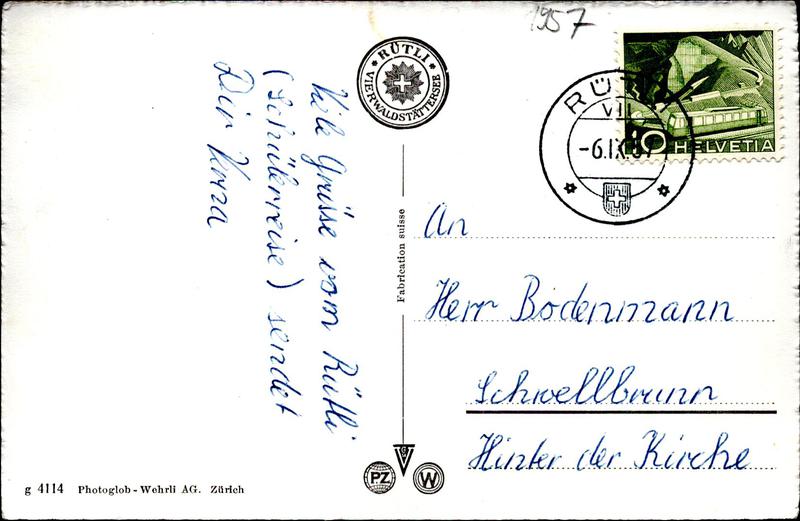 1957
RÜTLI
VIERWALDSTÄTTERSEE
Viele Grüsse vom Rütli
(Schülerreise) sendet
Dir
RÜTLI
VII
-6.IX.57
10
HELVETIA
Fabrication suisse
An
Herr Bodenmann
Schwellbrunn
Hinter der Kirche
PZ
W
g 4114 Photoglob-Wehrli AG. Zürich